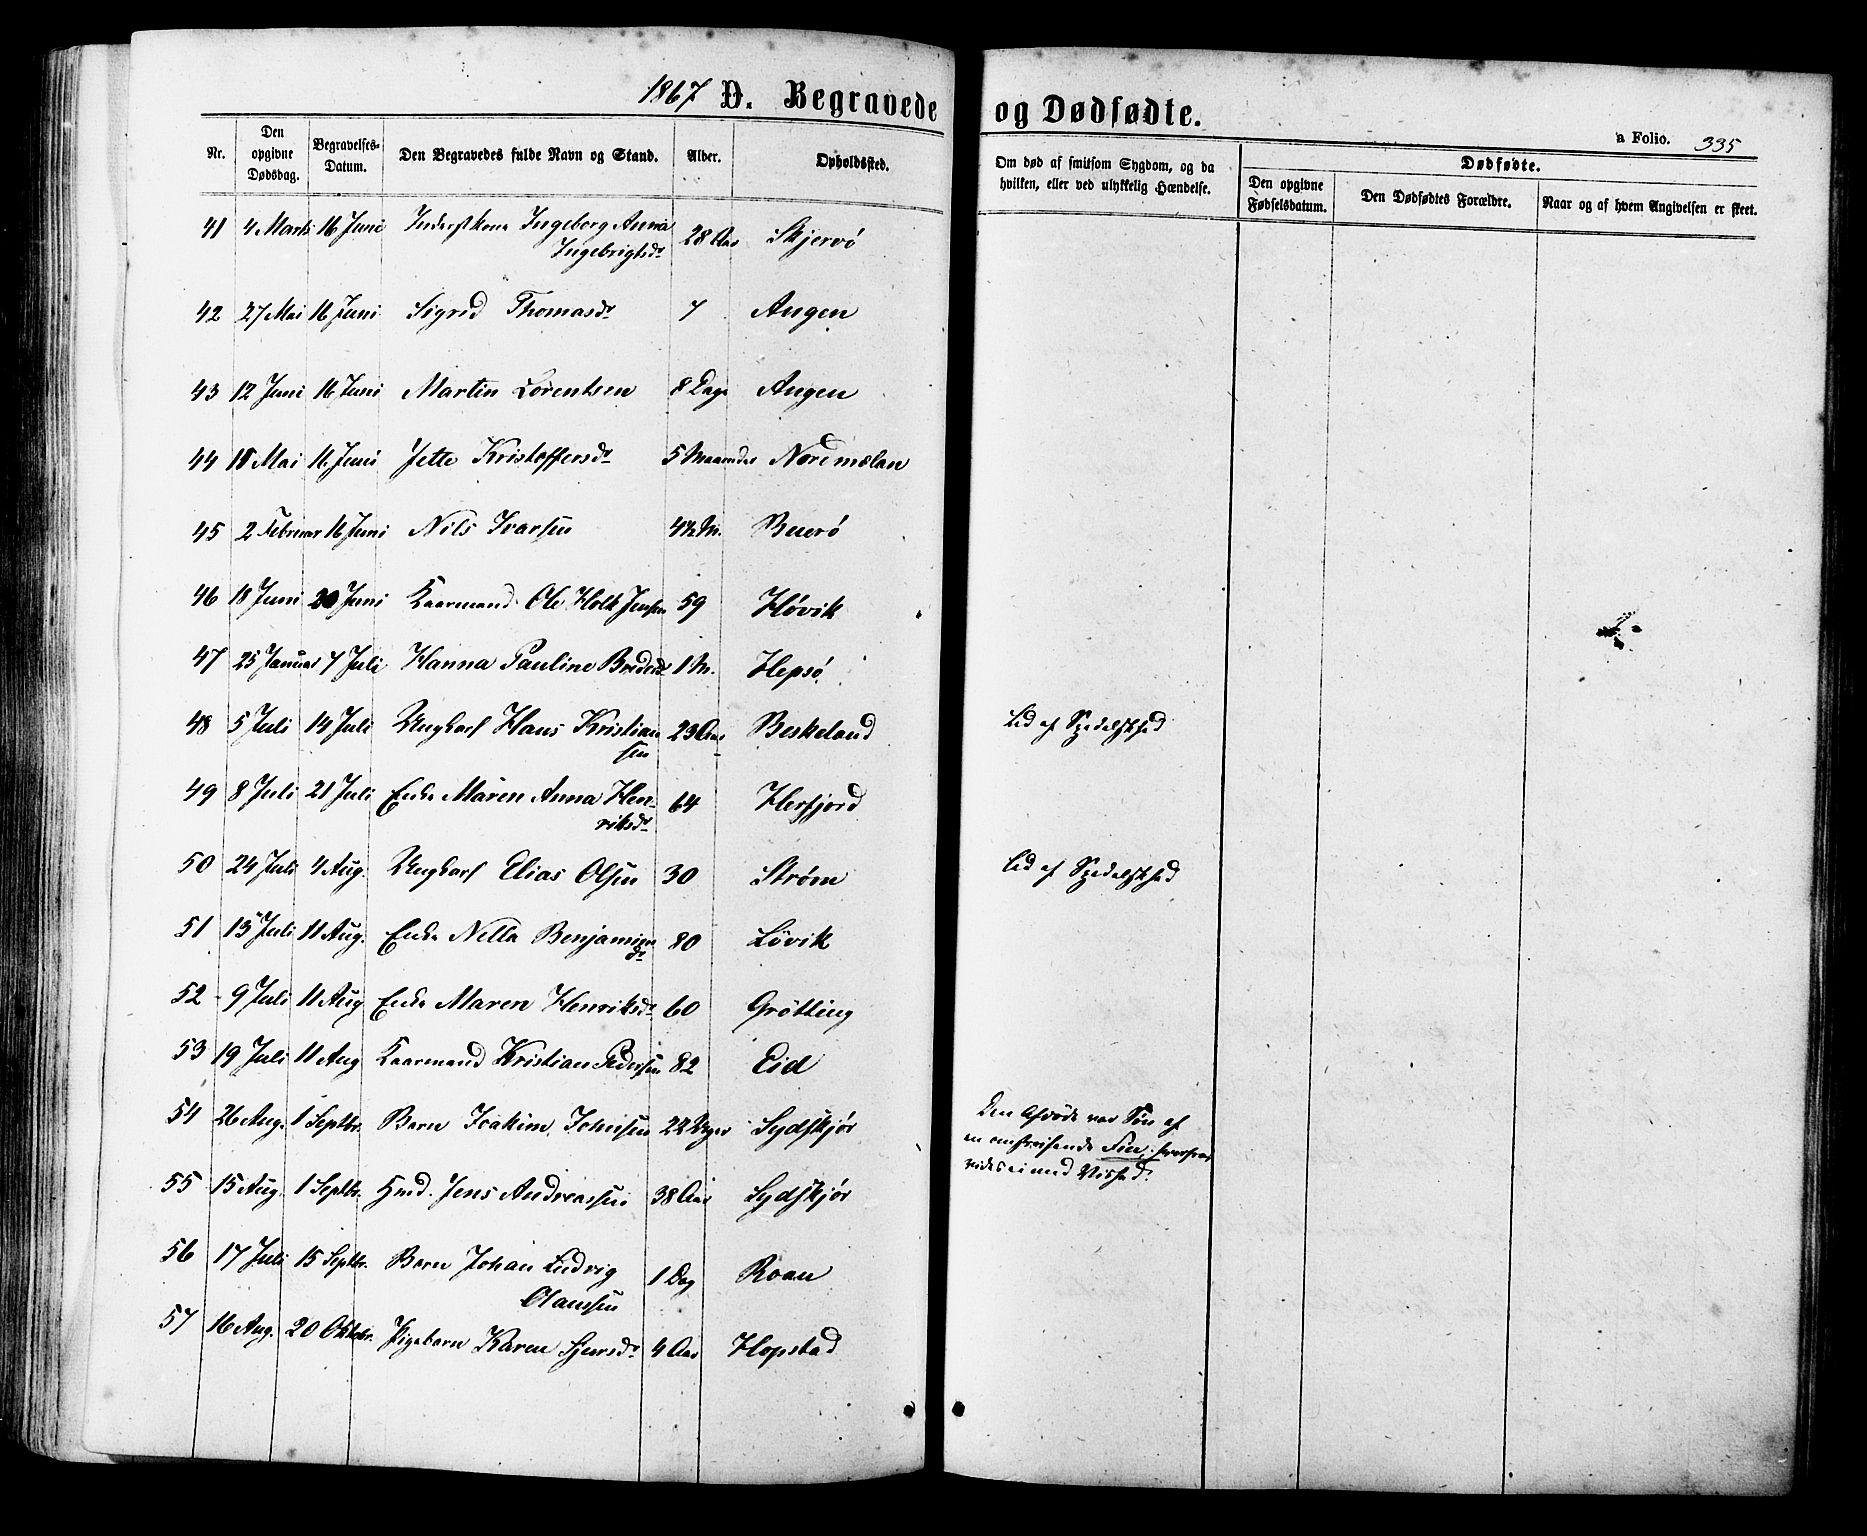 1867 D. Begravede og Dødfødte.
a Folio. 335
Nr. Den opgivne Dødsdag. Begravelses-Datum. Den Begravedes fulde Navn og Stand. Alder. Opholdssted. Om død af smitsom Sygdom, og da hvilken, eller ved ulykkelig Hændelse. Dødfødte. Den opgivne Fødselsdatum. Den Dødfødtes Forældre. Naar og af hvem Angivelsen er skeet.
41 4 Marts 16 Juni Inderstkone Ingeborg Anna 28 Aar Skjervö
Ingebrigtsdr
42 27 Mai 16 Juni Sigrid Thomasdr 7 Angen
43 12 Juni 16 Juni Martin Lorentsen 8 Dage Angen
44 18 Mai 16 Juni Jette Kristoffersdr 5 Maaneder Nordmælan
45 2 Februar 16 Juni Nils Ivarsen M. Buerö
46 18 Juni 20 Juni Kaarmand Ole Holk Jensen 59 Hövik
47 25 Januar 7 Juli Hanna Pauline 1 M. Hepsö
48 5 Juli 14 Juli Ungkarl Hans Kristian 23 Aar Beskeland Led af Spedalskhed
sen
49 8 Juli 21 Juli Enke Maren Anna Hen- 64 Herfjord
riksdr
50 24 Juli 4 Aug. Ungkarl Elias Olsen 30 Strøm Led af Spedalskhed
51 13 Juli 11 Aug. Enke Nella Benjamins 80 Lövik
dr
52 9 Juli 11 Aug Enke Maren Henriksdr 60 Grötting
53 19 Juli 11 Aug Kaarmand Kristian Pedersen 82 Eid
54 26 Aug. 1 Septbr. Barn Joakim Johnsen 22 Uger Sydskjör Den Afdöde var Sön af
en omstreifende Fin, hvorfra
vides ei med Vished.
55 15 Aug. 1 Septbr. Hmd. Jens Andreassen 38 Aar Sydskjör
56 17 Juli 15 Septbr. Barn Johan Ludvig 1 Dag Roan
Olaussen
57 16 Aug. 20 Oktobr. Pigebarn Karen Sjursdr 4 Aar Hopstad